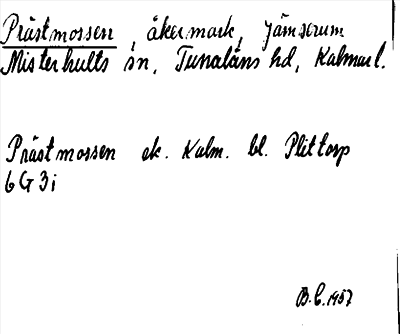 Prästmossen, åkermark, Jämserum
Misterhults sn, Tunaläns hd, Kalmar l.
Prästmossen ek. Kalm. bl. Plittorp
6G3i
B.C. 1957